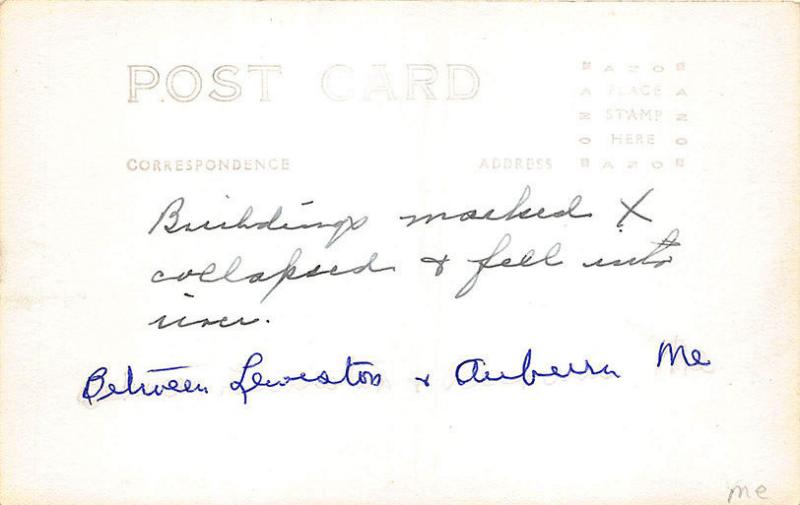 POST CARD
AZO
PLACE
STAMP
HERE
AZO
CORRESPONDENCE ADDRESS
Buildings marked X
collapsed & fell into
river.
Between Lewiston & Auburn Me
Me